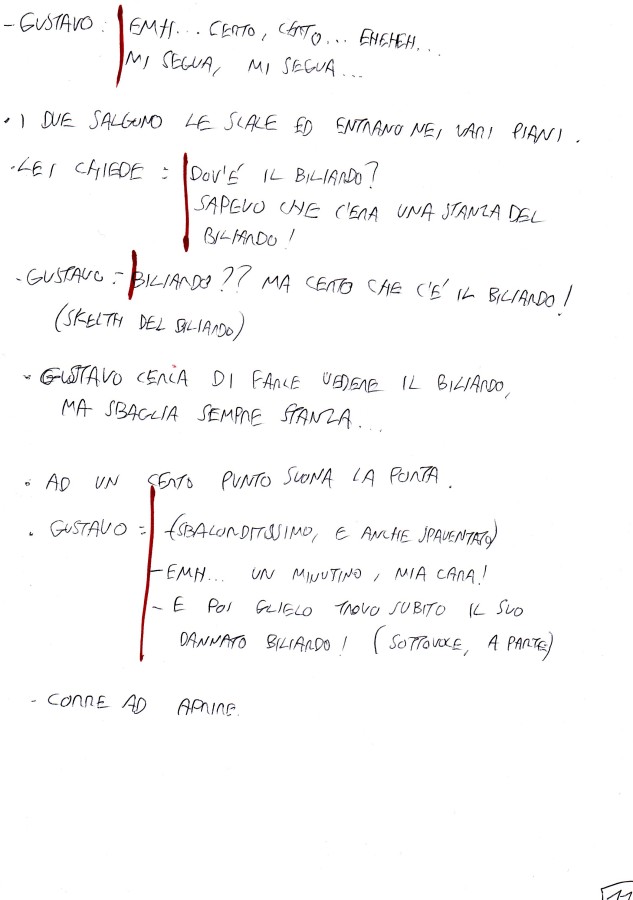 - GUSTAVO: EMH... CERTO, CERTO... EHEHEH...
MI SEGUA, MI SEGUA...
• I DUE SALGONO LE SCALE ED ENTRANO NEI VARI PIANI.
- LEI CHIEDE = DOV'É IL BILIARDO?
SAPEVO CHE C'ERA UNA STANZA DEL
BILIARDO!
- GUSTAVO = BILIARDO?? MA CERTO CHE C'É IL BILIARDO!
(SKELTH DEL BILIARDO)
- GUSTAVO CERCA DI FARLE VEDERE IL BILIARDO,
MA SBAGLIA SEMPRE STANZA...
• AD UN CERTO PUNTO SUONA LA PORTA.
• GUSTAVO = (SBALORDITISSIMO, E ANCHE SPAVENTATO)
- EMH... UN MINUTINO, MIA CARA!
- E POI GLIELO TROVO SUBITO IL SUO
DANNATO BILIARDO! (SOTTOVOCE, A PARTE)
- CORRE AD APRIRE.
11